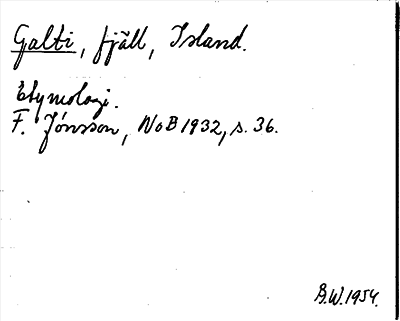 Galti, fjäll, Island.
Etymologi.
F. Jónsson, NoB 1932, s. 36.
B.W. 1954.